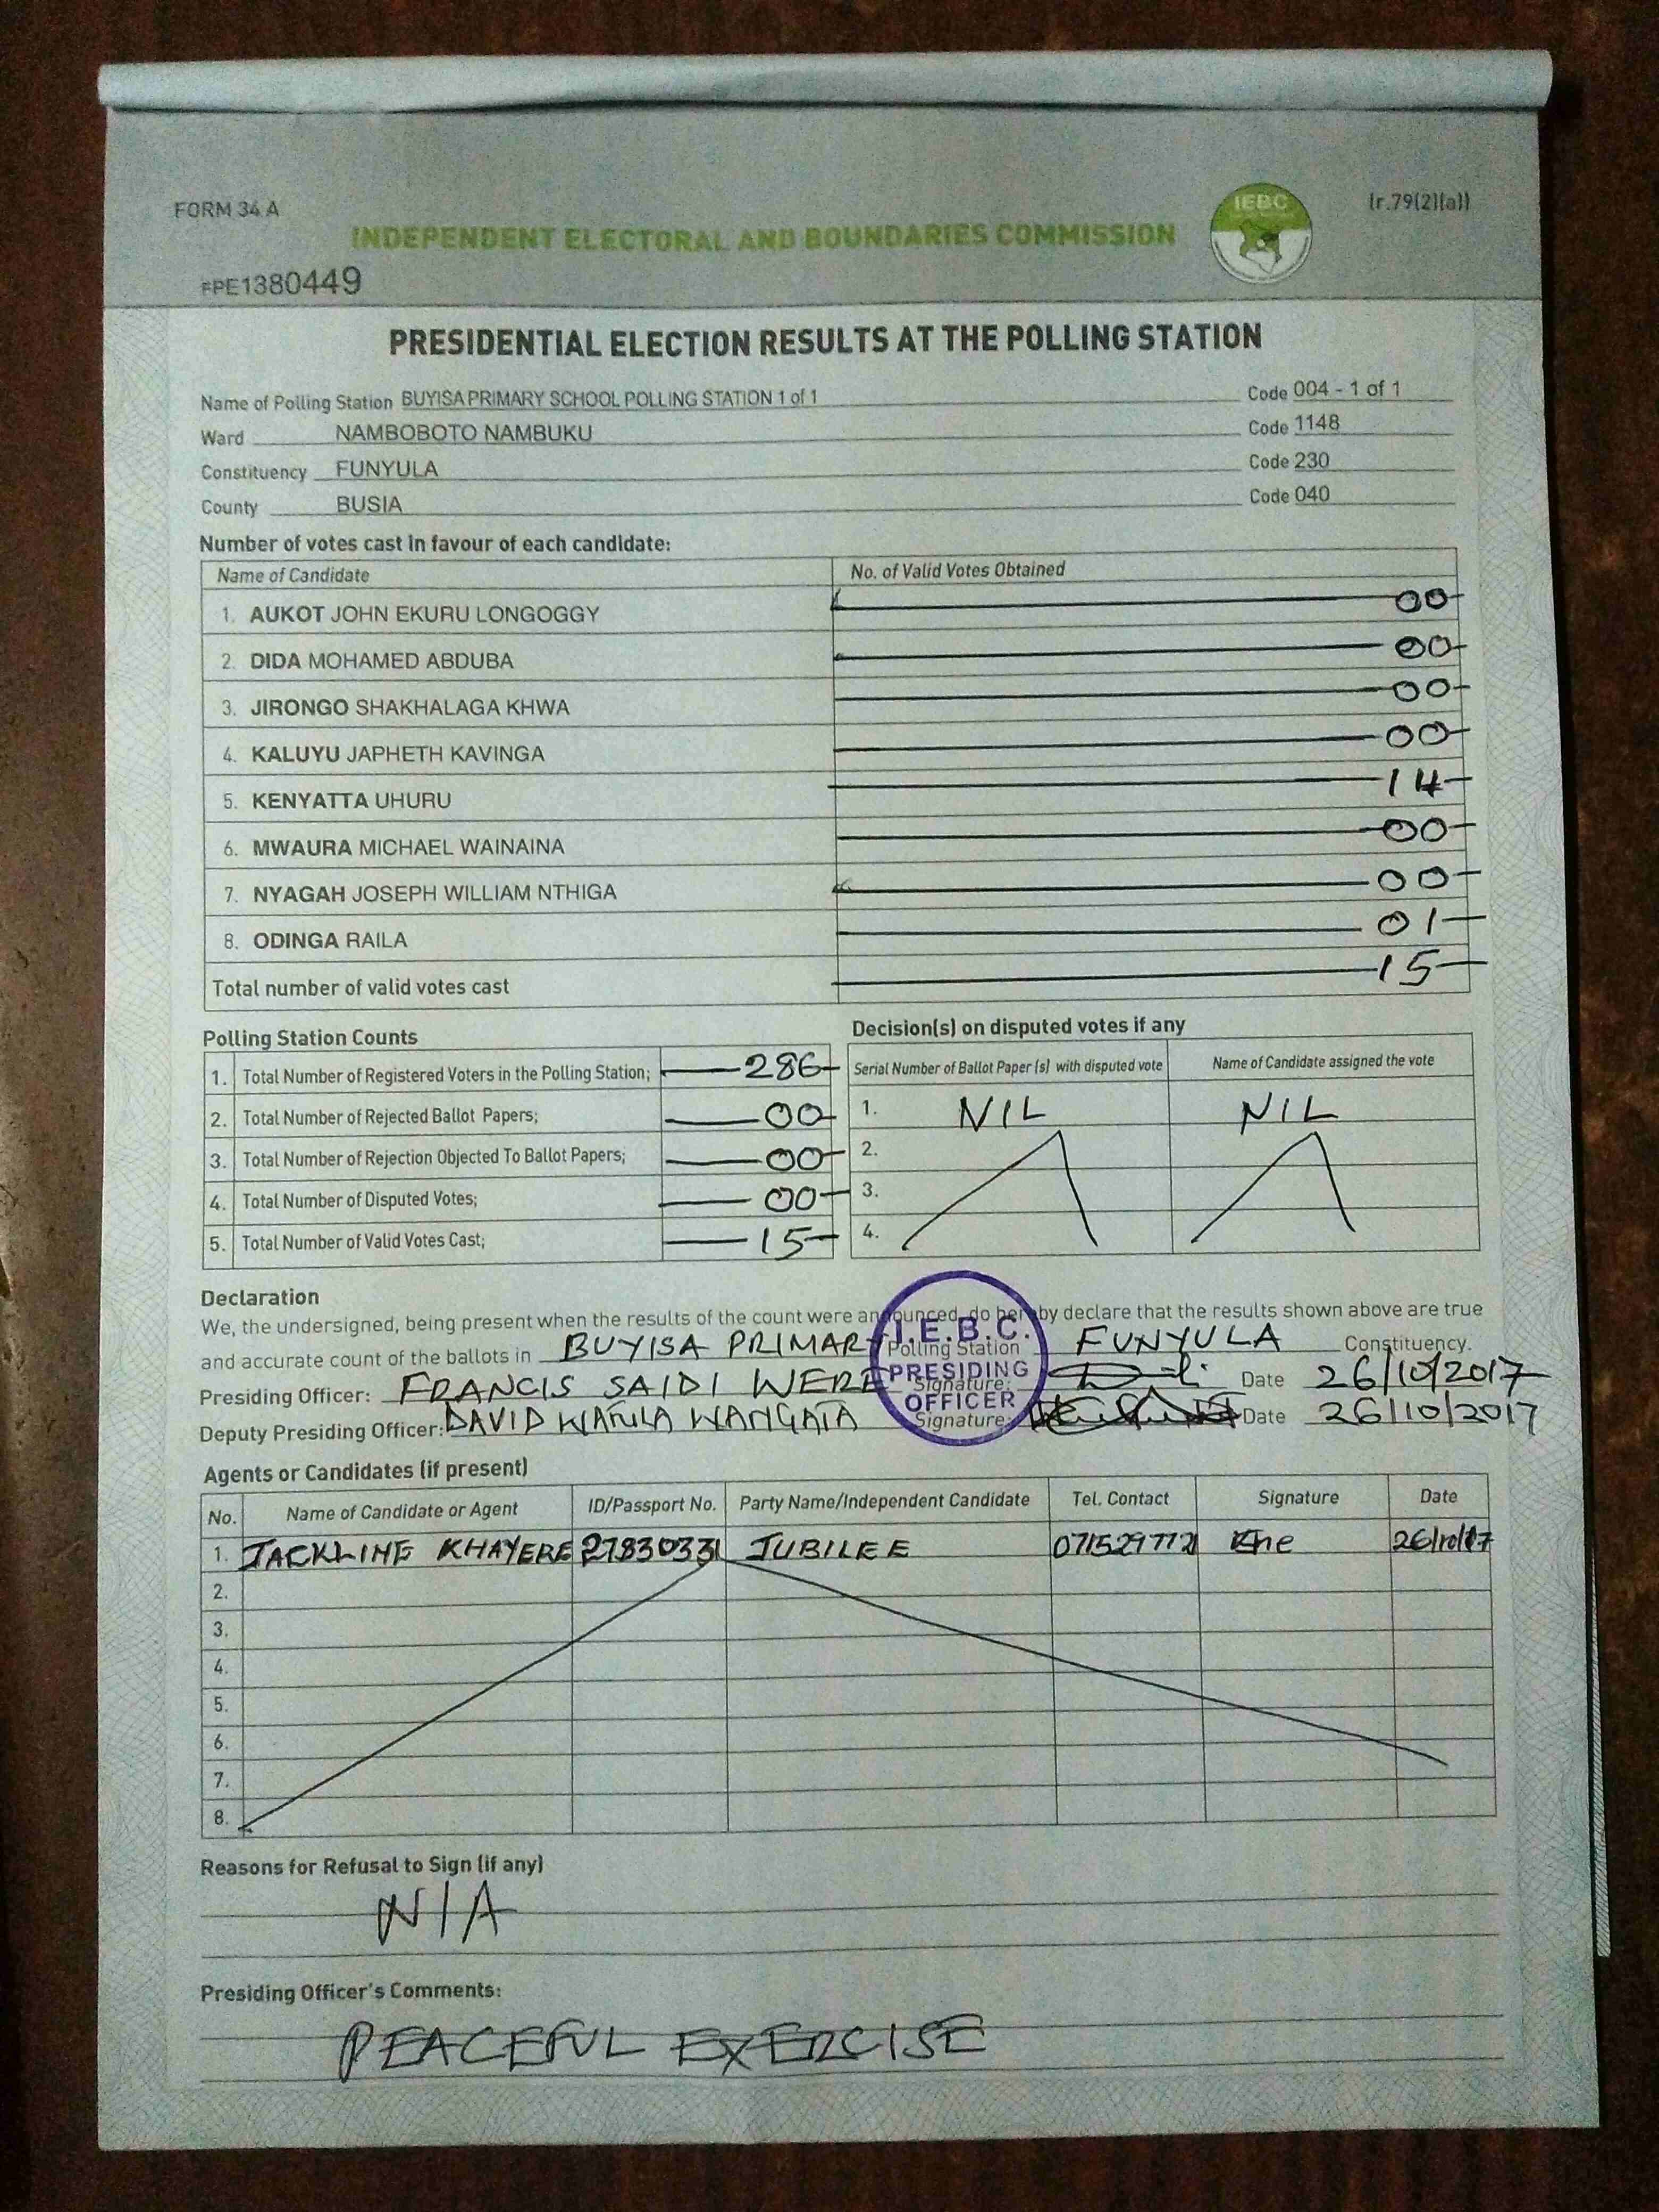 FORM 34 A
(r.79(2)(a))
IEBC
INDEPENDENT ELECTORAL AND BOUNDARIES COMMISSION
FPE1380449
PRESIDENTIAL ELECTION RESULTS AT THE POLLING STATION
Name of Polling Station BUYISA PRIMARY SCHOOL POLLING STATION 1 of 1 Code 004 - 1 of 1
Ward NAMBOBOTO NAMBUKU Code 1148
Constituency FUNYULA Code 230
County BUSIA Code 040
Number of votes cast in favour of each candidate:
Name of Candidate No. of Valid Votes Obtained
1. AUKOT JOHN EKURU LONGOGGY 00
2. DIDA MOHAMED ABDUBA 00
3. JIRONGO SHAKHALAGA KHWA 00
4. KALUYU JAPHETH KAVINGA 00
5. KENYATTA UHURU 14
6. MWAURA MICHAEL WAINAINA 00
7. NYAGAH JOSEPH WILLIAM NTHIGA 00
8. ODINGA RAILA 01
Total number of valid votes cast 15
Polling Station Counts
1. Total Number of Registered Voters in the Polling Station; 286
2. Total Number of Rejected Ballot Papers; 00
3. Total Number of Rejection Objected To Ballot Papers; 00
4. Total Number of Disputed Votes; 00
5. Total Number of Valid Votes Cast; 15
Decision(s) on disputed votes if any
Serial Number of Ballot Paper (s) with disputed vote Name of Candidate assigned the vote
1. NIL NIL
2.
3.
4.
Declaration
We, the undersigned, being present when the results of the count were announced, do hereby declare that the results shown above are true
and accurate count of the ballots in BUYISA PRIMARY Polling Station FUNYULA Constituency.
Presiding Officer: FRANCIS SAIDI WERE Signature: Date 26/10/2017
Deputy Presiding Officer: DAVID WANGATA Signature: Date 26/10/2017
I.E.B.C.
PRESIDING
OFFICER
Agents or Candidates (if present)
No. Name of Candidate or Agent ID/Passport No. Party Name/Independent Candidate Tel. Contact Signature Date
1. JACKLINE KHAYERE 27830331 JUBILEE 26/10/17
2.
3.
4.
5.
6.
7.
8.
Reasons for Refusal to Sign (if any)
N/A
Presiding Officer's Comments:
PEACEFUL EXERCISE